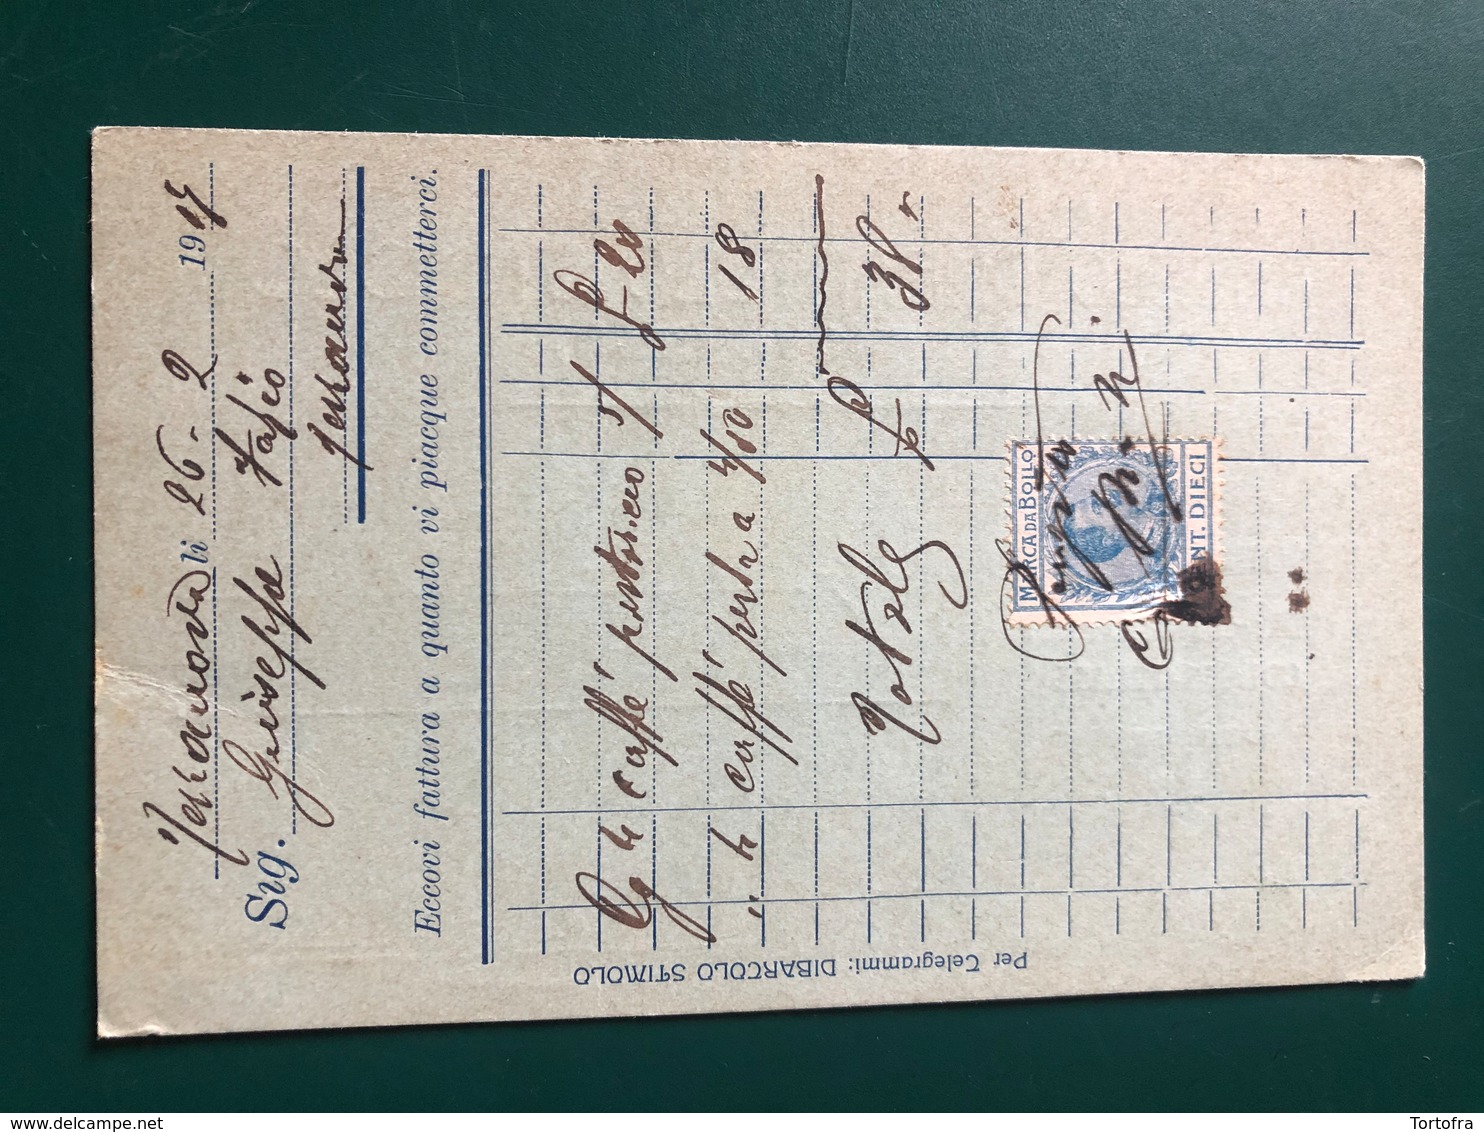 Terranova li 26 - 2 1915
Sig. Giuseppe Fasio
Terranova
Eccovi fattura a quanto vi piacque commetterci.
Cg 4 caffé portoricco 5/ £ 20
" 4 caffé perla a 4/50 18
Totale £ 38
MARCA DA BOLLO
CENT. DIECI
Per Telegrammi: DIBARTOLO STIMOLO
Tortofra